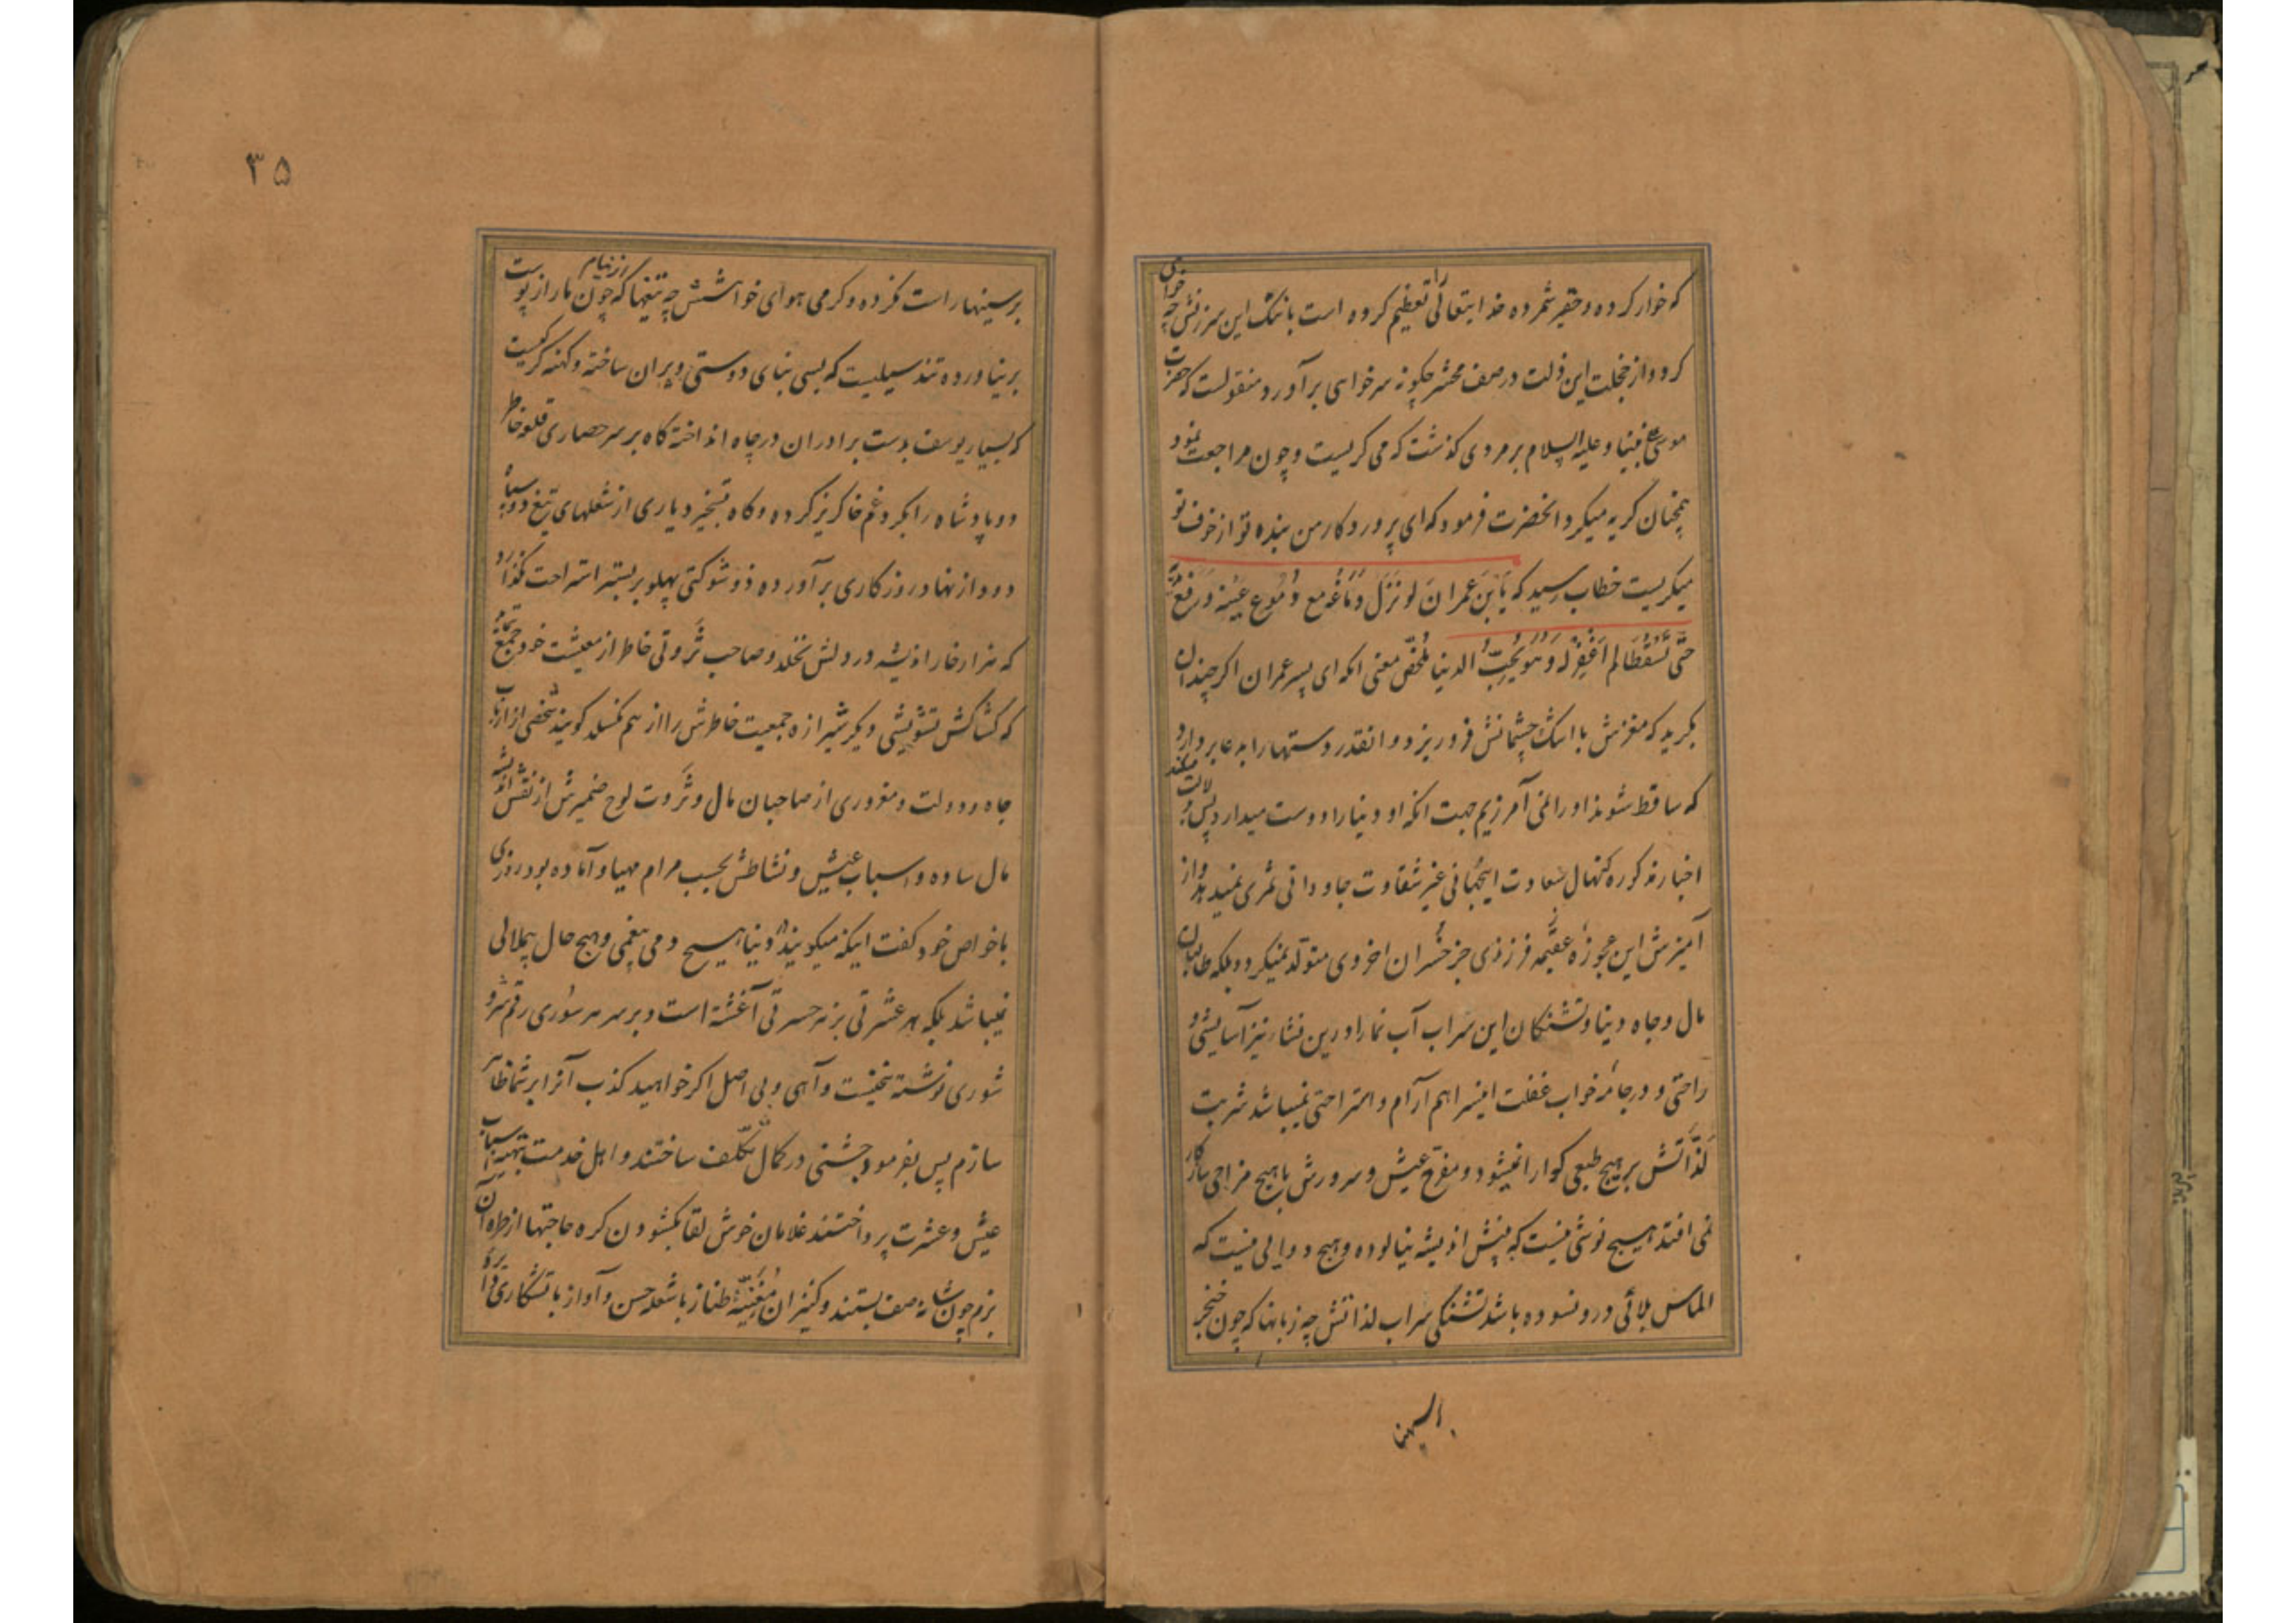 که خوار کرده و حقیر شمرده خدایتعالی را تعظیم کرده است باننک این سرزنش چه خواهی
کرد و از خجلت این ذلت در صف محشر چکونه سر خواهی برآورد منقولست که حضرت
موسی علی نبینا و علیه السلام بر مردی کذشت که می کریست و چون مراجعت نمود
همچنان کریه میکرد انحضرت فرمود که ای پروردکار من بنده تو از خوف تو
میکریست خطاب رسید که یابن عمران لو نزل دماغه مع دموع عینه و رفع یدیه
حتی تسقطا لم اغفر له و هو یحب الدنیا ملخص معنی انکه ای پسر عمران اکر چندان
بکرید که مغزش با اشک چشمانش فرو ریزد و انقدر دستها را به دعا بر دارد
که ساقط شوند او را نمی آمرزیم جهت انکه او دنیا را دوست میدارد پس بدلالت
اخبار مذکوره نهال سعادت اینجهانی غیر شقاوت جاودانی ثمری نمیدهد و از
آمیزش این عجوزه عقیمه فرزندی جز خسران اخروی متولد نمیکردد بلکه طالبان
مال و جاه دنیا و تشنکان این سراب آب نما را درین نشاء نیز آسایشی و
راحتی و در جامه خواب غفلت اینسرا هم آرام و استراحتی نمیباشد شربت
لذاتش بر هیچ طبعی کوارا نمیشود و مفرح عیش و سرورش با هیچ مزاجی سازکار
نمی افتد هیچ نوشی نیست که به نیش اندیشه نیالوده و هیچ دوایی نیست که
الماس بلائی درو نسوده باشد تشنکی سراب لذاتش چه زبانها که چون خنجر
بر سینها
۳۵
بر سینها راست نکرده و کرمی هوای خواهشش چه تیغها که چون مار از پوست از نیام
بر نیاورده تند سیلیست که بسی بنای دوستی ویران ساخته و کهنه کرکیست
که بسیار یوسف بدست برادران در چاه انداخته کاه بر سر حصاری قلوه خاطر
دو پادشاه را بکرد غم خاکریز کرده و کاه بتسخیر دیاری از شعلهای تیغ دو سپاه
دود از نهاد روزکاری برآورده ذو شوکتی پهلو بر بستر استراحت نکذارد
که هزار خار اندیشه در دلش نخلد و صاحب ثروتی خاطر از معیشت خود جمع ننماید
که کشاکش تشویشی دیکر شیرازه جمعیت خاطرش را از هم نکسلد کویند شخصی از ارباب
جاه و دولت و مغروری از صاحبان مال و ثروت لوح ضمیرش از نقش اندیشه
مال ساده و اسباب عیش و نشاطش بحسب مرام مهیا و آماده بود روزی
با خواص خود کفت اینکه میکویند در دنیا هیچ دمی بیغمی و هیچ حال بیملالی
نمیباشد بلکه هر عشرتی بزهر حسرتی آغشته است و بر سر هر سوری رقم شر و
شوری نوشته سخنیست واهی و بی اصل اکر خواهید کذب آنرا بر شما ظاهر
سازم پس بفرمود جشنی در کمال تکلف ساختند و اهل خدمت بتهیه اسباب
عیش و عشرت پرداختند غلامان خوش لقا بکشودن کره حاجتها از طره آن
بزم چون شانه صف بستند و کنیزان مغنیه طناز با شعله حسن و آواز باتشکاری